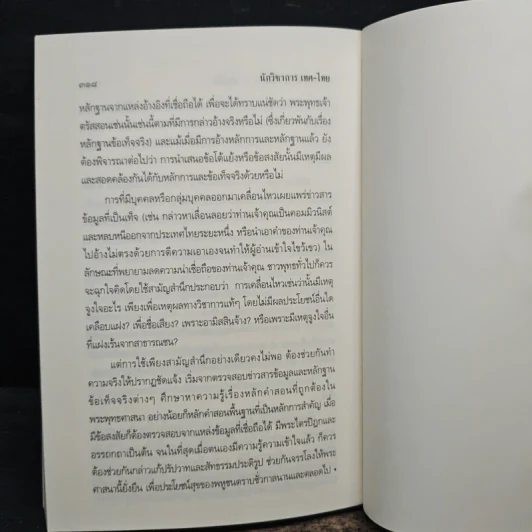 ๓๑๘
นักวิชาการ เทศ-ไทย
หลักฐานจากแหล่งอ้างอิงที่เชื่อถือได้ เพื่อจะได้ทราบแน่ชัดว่า พระพุทธเจ้า
ตรัสสอนเช่นนั้นเช่นนี้ตามที่มีการกล่าวอ้างจริงหรือไม่ (ซึ่งเกี่ยวพันกับเรื่อง
หลักฐานข้อเท็จจริง) และแม้เมื่อมีการอ้างหลักการและหลักฐานแล้ว ยัง
ต้องพิจารณาต่อไปว่า การนำเสนอข้อโต้แย้งหรือข้อสงสัยนั้นมีเหตุมีผล
และสอดคล้องกันได้กับหลักการและข้อเท็จจริงด้วยหรือไม่
การที่มีบุคคลหรือกลุ่มบุคคลออกมาเคลื่อนไหวเผยแพร่ข่าวสาร
ข้อมูลที่เป็นเท็จ (เช่น กล่าวหาเลื่อนลอยว่าท่านเจ้าคุณเป็นคอมมิวนิสต์
และหลบหนีออกจากประเทศไทยระยะหนึ่ง หรือนำเอาคำของท่านเจ้าคุณ
ไปอ้างไม่ตรงด้วยการตีความเอาเองจนทำให้ผู้อ่านเข้าใจไขว้เขว) ใน
ลักษณะที่พยายามลดความน่าเชื่อถือของท่านเจ้าคุณ ชาวพุทธทั่วไปก็ควร
จะฉุกใจคิดโดยใช้สามัญสำนึกประกอบว่า การเคลื่อนไหวเช่นว่านั้นมีเหตุ
จูงใจอะไร เพียงเพื่อเหตุผลทางวิชาการแท้ๆ โดยไม่มีผลประโยชน์อื่นใด
เคลือบแฝง? เพื่อชื่อเสียง? เพราะอามิสสินจ้าง? หรือเพราะมีเหตุจูงใจอื่น
ที่แฝงเร้นจากสาธารณชน?
แต่การใช้เพียงสามัญสำนึกอย่างเดียวคงไม่พอ ต้องช่วยกันทำ
ความจริงให้ปรากฏชัดแจ้ง เริ่มจากตรวจสอบข่าวสารข้อมูลและหลักฐาน
ข้อเท็จจริงต่างๆ ศึกษาหาความรู้เรื่องหลักคำสอนที่ถูกต้องใน
พระพุทธศาสนา อย่างน้อยก็หลักคำสอนพื้นฐานที่เป็นหลักการสำคัญ เมื่อ
มีข้อสงสัยก็ต้องตรวจสอบจากแหล่งข้อมูลที่เชื่อถือได้ มีพระไตรปิฎกและ
อรรถกถาเป็นต้น จนในที่สุดเมื่อตนเองมีความรู้ความเข้าใจแล้ว ก็ควร
ต้องช่วยกันกล่าวแก้ปรัปวาทและสัทธรรมประติรูป ช่วยกันจรรโลงให้พระ
ศาสนานี้ยั่งยืน เพื่อประโยชน์สุขของพหูชนตราบชั่วกาลนานและตลอดไป •